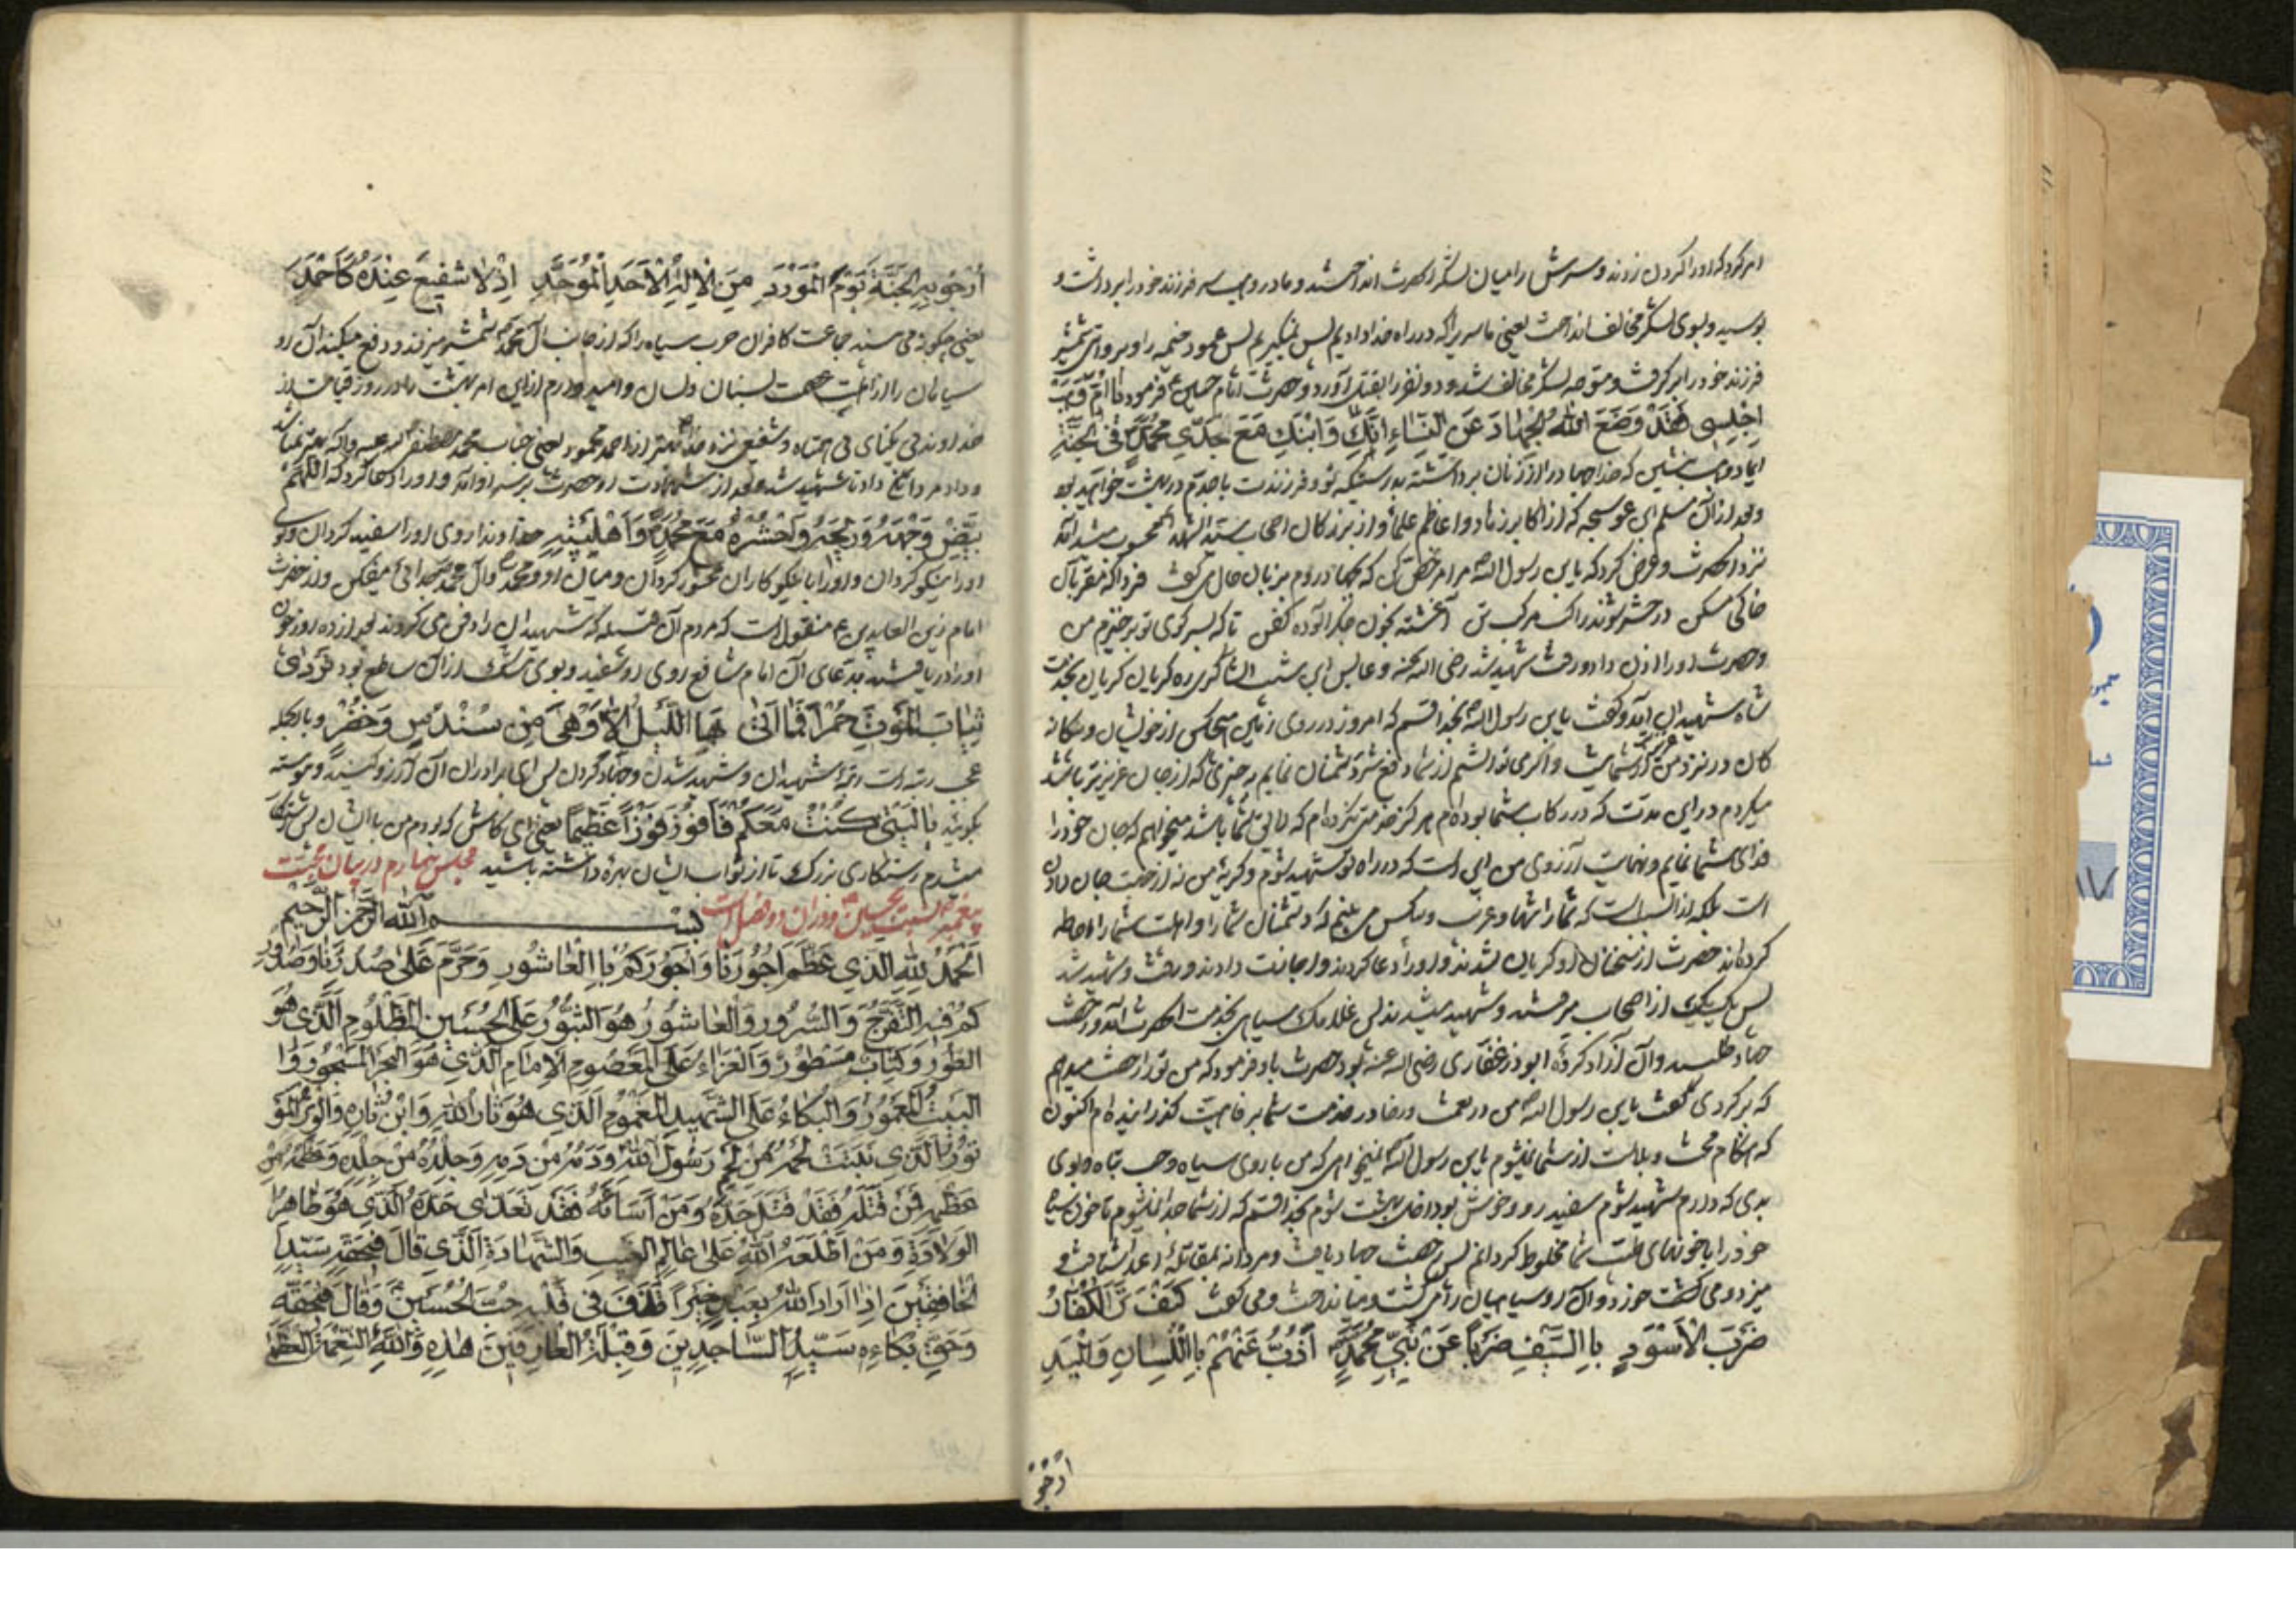 امر کرد که او را کردن زدند و سرش را میان لشکر انحضرت انداختند و مادر وهب سر فرزند خود را برداشت و
بوسید و بسوی لشکر مخالف انداخت یعنی ما سریرا که در راه خدا دادیم پس نمیگیریم پس عمود خیمه را و بروایتی شمشیر
فرزند خود را برگرفت و متوجه لشکر مخالف شد و دو نفر را بقتل آورد و حضرت امام حسین ع فرمود یا اُمَّ وَهَبْ
اِجْلِسِی فَقَدْ وَضَعَ اللهُ الْجِهادَ عَنِ النِّساءِ اِنَّکِ وَابْنَکِ مَعَ جَدّی مُحَمَّدٍ فِی الْجَنَّةِ
ایمادر وهب بنشین که خدا جهاد را از زنان برداشته بدرستیکه تو و فرزندت با جدم در بهشت خواهید بود
و بعد از آن مسلم ابن عوسجه که از اکابر زهاد و اعاظم علما و از بزرکان اصحاب سید الشهدا محسوب میشد آمد
نزد انحضرت و عرض کرد که یابن رسول الله مرا مرخص کن که بجهاد روم بزبان حال می کفت فردا که نفربان
خاکی مسکن در حشر شوند راکب مرکب تن آغشته بخون جکر آلوده کفن تا که بسر کوی تو برخیزم من
و حضرت او را اذن داد و رفت شهید شد رضی الله عنه و عابس ابن شبیب الشاکری ره کریان کریان بخدمت
شاه شهیدان آمد و کفت یابن رسول الله بخدا قسم که امروز در روی زمین هیچکس از خویشان و بیکانه
کان در نزد من عزیزتر از شما نیست و اکر می توانستم از شما دفع شر دشمنان نمایم بچیزی که از جان عزیزتر باشد
میکردم در این مدت که در رکاب شما بوده ام هرکز خدمتی نکرده ام که لایق شما باشد میخواهم که جان خود را
فدای شما نمایم و نهایت آرزوی من این است که در راه تو شهید شوم و کریه من نه از جهت جان دادن
است بلکه از این است که شما را تنها و غریب و بیکس می بینم که دشمنان شما را و اهلبیت شما را احاطه
کرده اند حضرت از سخنان او کریان شدند و او را دعا کردند و اجازت دادند و رفت و شهید شد
پس یک یک از اصحاب میرفتند و شهید میشدند پس غلامک سیاهی بخدمت انحضرت آمد و رخصت
جهاد طلبید و آن آزاد کرده ابوذر غفاری رضی الله عنه بود حضرت باو فرمود که من تو را رخصت میدهم
که برکردی کفت یابن رسول الله من در نعمت و رضا در خدمت شما برفاهیت کذرانیده ام اکنون
که هنکام محنت و بلاست از شما نمیشوم یابن رسول الله نمیخواهی که من با روی سیاه و حسب تباه و بوی
بدی که دارم شهید شوم سفید رو و خوش بو داخل بهشت شوم بخدا قسم که از شما جدا نمیشوم تا خون سیاه
خود را با خونهای اهلبیت شما مخلوط کردانم پس رخصت جهاد یافت و مردانه بمقاتله اعدا شتافت و
میزد و می کشت و آن روسیاهان را می کشت و میانداخت و می کفت کَیْفَ تَرَی الْکُفّارُ
ضَرْبَ الْاَسْوَدِ بِالسَّیْفِ ضَرْباً عَنْ بَنی مُحَمَّدٍ اَذُبُّ عَنْهُمْ بِاللِّسانِ وَالْیَدِ
ارجو
اَرْجُو بِهِ الْجَنَّةَ یَوْمَ الْمَوْرِدِ مِنَ الْاِلهِ الْاَحَدِ الْمُوَحَّدِ اِذْ لا شَفیعَ عِنْدَهُ کَاَحْمَدَ
یعنی چکونه می بینند جماعت کافران حرب سیاه را که از جانب آل محمد شمشیر میزند و دفع میکند آن رو
سیاهان را از اهلبیت عصمت بسنان و لسان و امیدوارم از این امر بهشت را در روز قیامت از
خداوند یکتای بی اشتباه و شفیعی نزد خدا بهتر از احمد محمود یعنی جناب محمد مصطفی صلی الله علیه و آله نمیباشد
و داد مردانکی داد تا شهید شد و بعد از شهادت او حضرت بر سر او آمد و او را دعا کرد که اَللّهُمَّ
بَیِّضْ وَجْهَهُ وَ ریحَهُ وَاحْشُرْهُ مَعَ مُحَمَّدٍ وَ اَهْلِبَیْتِهِ خداوندا روی او را سفید کردان و بوی
او را نیکو کردان و او را با نیکوکاران محشور کردان و میان او و محمد و آل محمد جدائی میفکن و از حضرت
امام زین العابدین ع منقول است که مردم آن قبیله که شهیدان را دفن می کردند بعد از ده روز چون
او را دریافتند بدعای آن امام شافع روی او سفید و بوی مشک از آن ساطع بود تَرَدّی
ثِیابَ الْمَوْتِ حُمْراً فَما اَتی لَهَا اللَّیْلُ اِلّا وَهْیَ مِنْ سُنْدُسٍ وَ خُضْرٍ و بالجمله
عجب رتبه است رتبه شهیدان و شهید شدن و جهاد کردن پس ای برادران آن آرزو کنید و پیوسته
بکوئید یا لَیْتَنی کُنْتُ مَعَکُمْ فَاَفُوزَ فَوْزاً عَظیماً یعنی ای کاش که بودم من با ایشان پس رستکار
میشدم رستکاری بزرک تا از ثواب ایشان بهره داشته باشید مجلس چهارم در بیان محبت
پیغمبر نسبت بحسین ع و در آن دو فصل است بسم الله الرحمن الرحیم
اَلْحَمْدُ لِلّهِ الَّذی عَظَّمَ اُجُورَنا وَ اُجُورَکُمْ بِالْعاشُورِ وَ حَرَّمَ عَلی صُدُورِنا وَ صُدُورِ
کُمْ فیهِ التَّفَرُّجَ وَ السُّرُورَ وَالْعاشُورُ هُوَ الثُّبُورُ عَلَی الْحُسَیْنِ الْمَظْلُومِ الَّذی هُوَ
الطُّورُ وَ کِتابٌ مَسْطُورٌ وَالْعَزاءُ عَلَی الْمَعْصُومِ الْاِمامِ الَّذی هُوَ الْبَحْرُ الْمَسْجُورُ وَ
الْبَیْتُ الْمَعْمُورُ وَالْبُکاءُ عَلَی الشَّهیدِ الْمَغْمُومِ الَّذی هُوَ ثارُ اللهِ وَابْنُ ثارِهِ وَالْوِتْرُ الْمَوْ
تُورُ الَّذی نَبَتَتْ لَحْمُهُ مِنْ لَحْمِ رَسُولِ اللهِ وَ دَمُهُ مِنْ دَمِهِ وَ جِلْدُهُ مِنْ جِلْدِهِ وَ عَظْمُهُ مِنْ
عَظْمِهِ فَمَنْ قَتَلَهُ فَقَدْ قَتَلَ جَدَّهُ وَ مَنْ اَساءَهُ فَقَدْ تَعَدّی حَدَّهُ الَّذی هُوَ طاهِرُ
الْوِلادَةِ وَ مَنْ اَطْلَعَهُ اللهُ عَلی عالَمِ الْغَیْبِ وَالشَّهادَةِ الَّذی قالَ فی حَقِّهِ سَیِّدُ
الْخافِقَیْنَ اِذا اَرادَ اللهُ بِعَبْدٍ خَیْراً قَذَفَ فی قَلْبِهِ حُبَّ الْحُسَیْنِ وَ قالَ فی حَقِّهِ
وَ حَقِّ بُکاءِهِ سَیِّدُ السّاجِدینَ وَ قِبْلَةُ الْعارِفینَ هذِهِ وَاللهِ النِّعْمَةُ الْعُظْمی